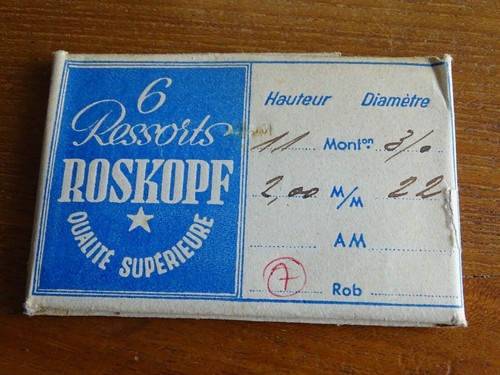 6
Ressorts
ROSKOPF
QUALITÉ SUPÉRIEURE
Hauteur Diamètre
11 Monton. 3/0
2,00 M/M 22
AM
7 Rob